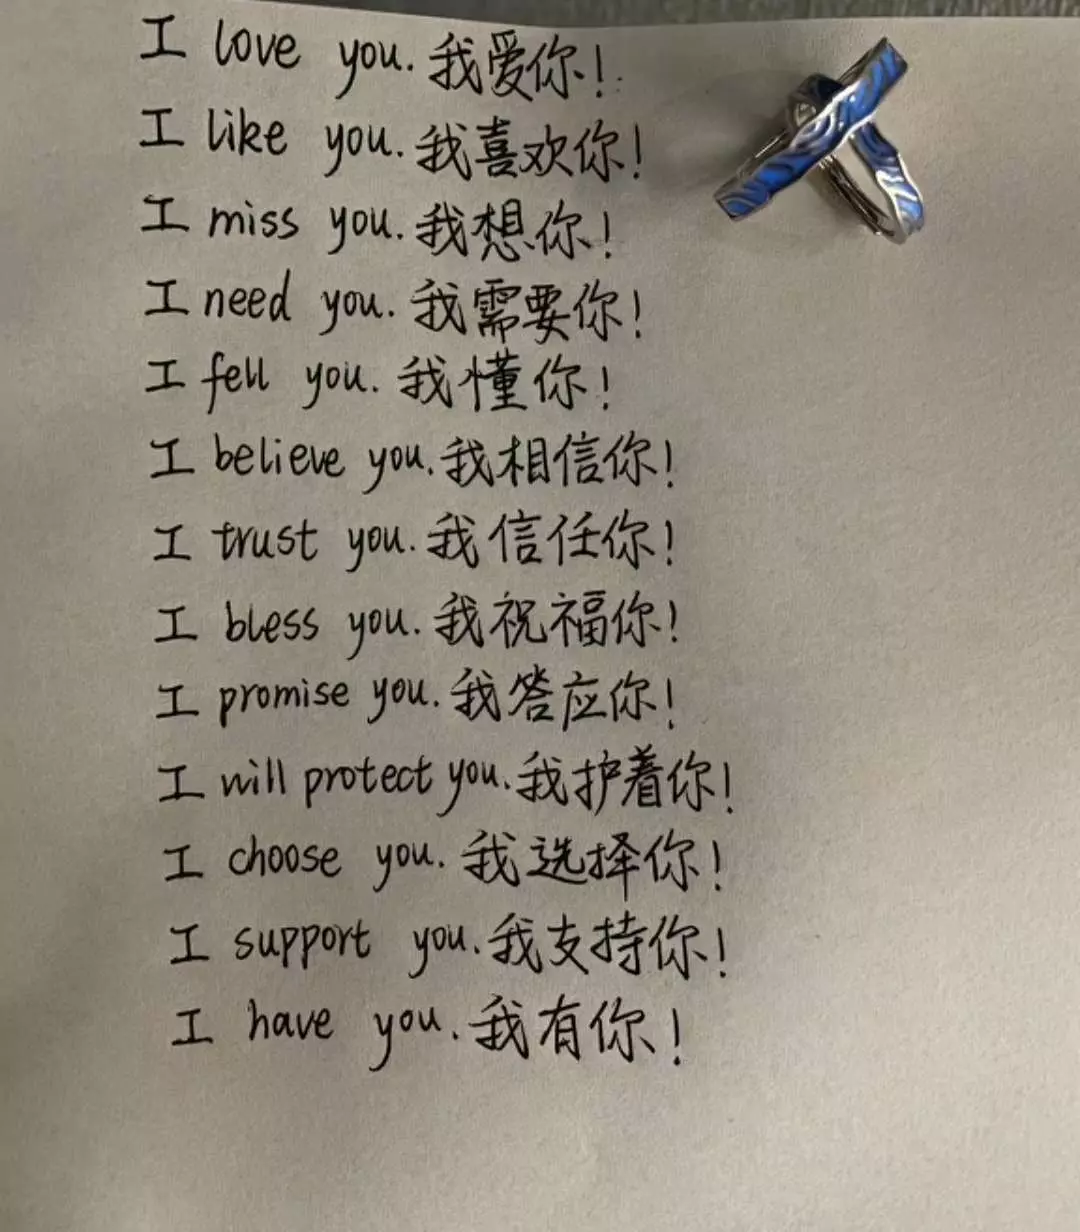 I love you.我爱你!
I like you.我喜欢你!
I miss you.我想你!
I need you.我需要你!
I fell you.我懂你!
I believe you.我相信你!
I trust you.我信任你!
I bless you.我祝福你!
I promise you.我答应你!
I will protect you.我护着你!
I choose you.我选择你!
I support you.我支持你!
I have you.我有你!